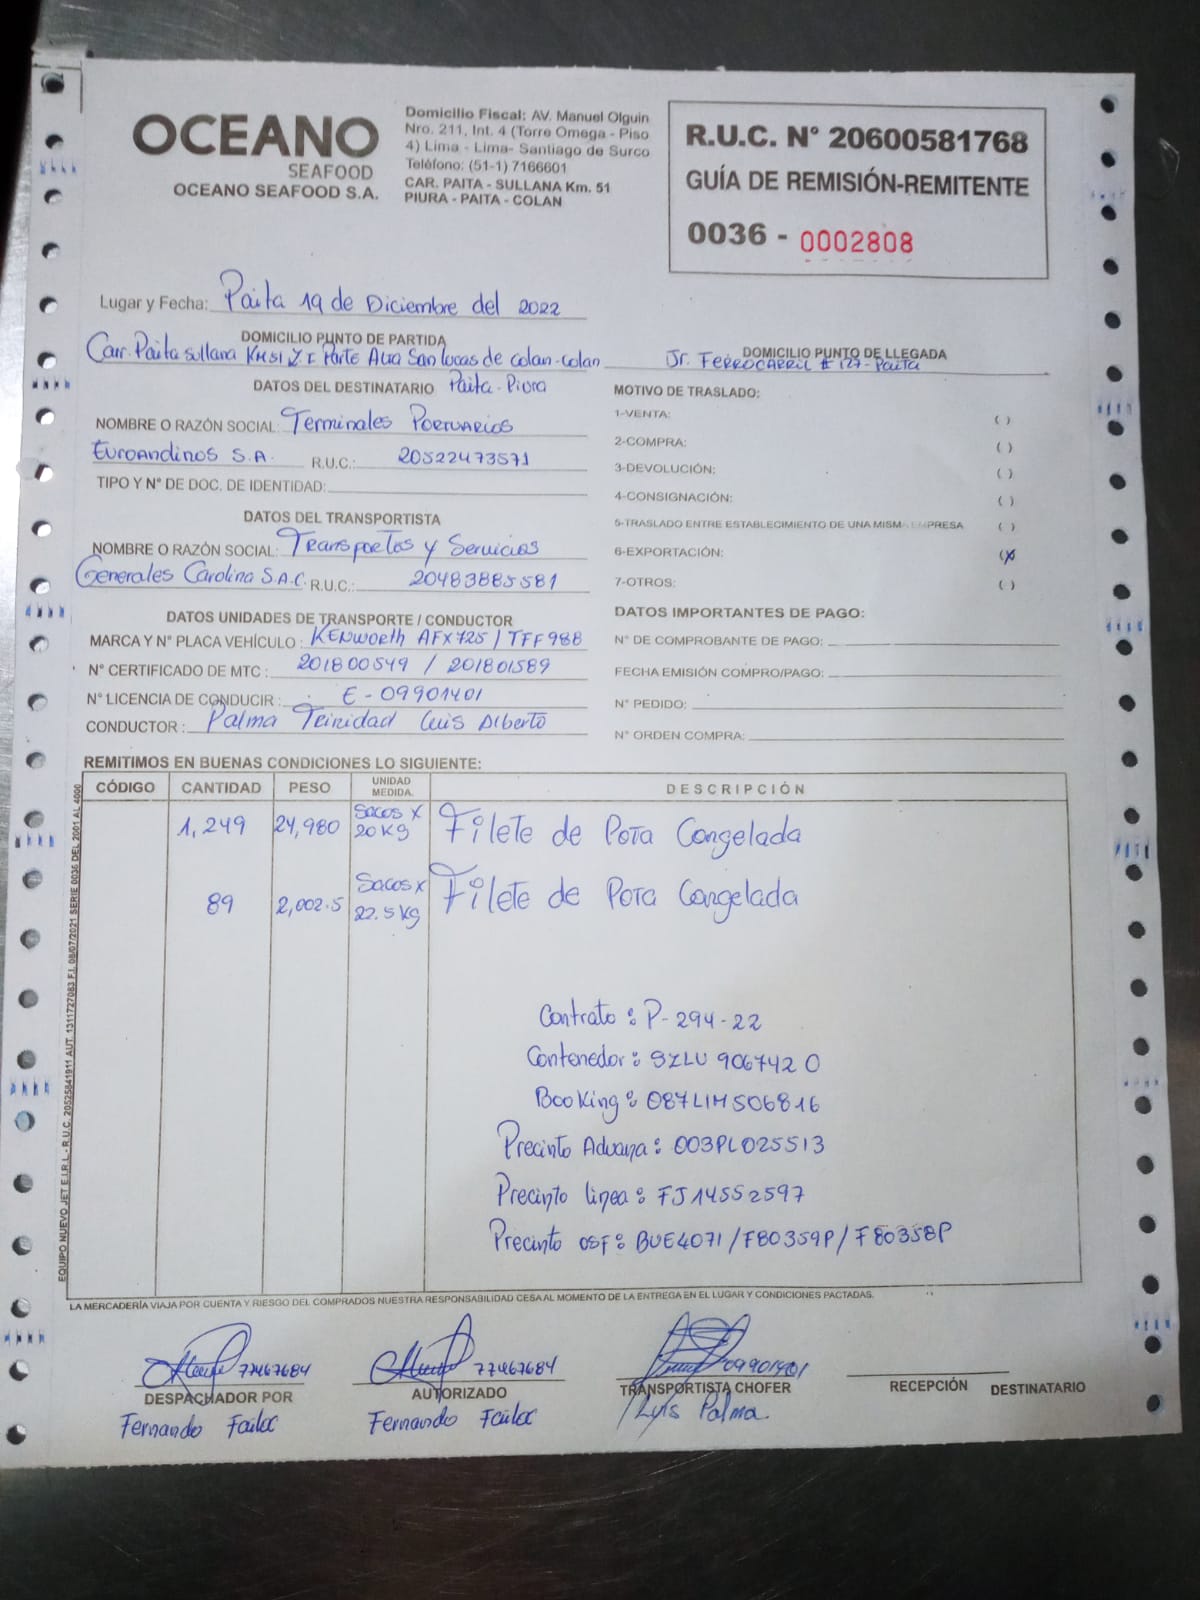 OCEANO
SEAFOOD
OCEANO SEAFOOD S.A.
Domicilio Fiscal: AV. Manuel Olguin
Nro. 211, Int. 4 (Torre Omega - Piso
4) Lima - Lima- Santiago de Surco
Teléfono: (51-1) 7166601
CAR. PAITA - SULLANA Km. 51
PIURA - PAITA - COLAN
R.U.C. N° 20600581768
GUÍA DE REMISIÓN-REMITENTE
0036 - 0002808
Lugar y Fecha: Paita 19 de Diciembre del 2022
DOMICILIO PUNTO DE PARTIDA
Carr. Paita Sullana KM51 Z I Parte Alta San Lucas de Colan-Colan
Paita-Piura
DOMICILIO PUNTO DE LLEGADA
Jr. FERROCARRIL # 127-Paita
DATOS DEL DESTINATARIO
NOMBRE O RAZÓN SOCIAL: Terminales Portuarios
Euroandinos S.A. R.U.C.: 20522473571
TIPO Y N° DE DOC. DE IDENTIDAD:
DATOS DEL TRANSPORTISTA
NOMBRE O RAZÓN SOCIAL: Transportes y Servicios
Generales Carolina S.A.C. R.U.C.: 20483885581
DATOS UNIDADES DE TRANSPORTE / CONDUCTOR
MARCA Y N° PLACA VEHÍCULO: KENWORTH AFX725 / TFF988
N° CERTIFICADO DE MTC: 201800549 / 201801589
N° LICENCIA DE CONDUCIR: E-09901401
CONDUCTOR: Palma Trinidad Luis Alberto
MOTIVO DE TRASLADO:
1-VENTA: ( )
2-COMPRA: ( )
3-DEVOLUCIÓN: ( )
4-CONSIGNACIÓN: ( )
5-TRASLADO ENTRE ESTABLECIMIENTO DE UNA MISMA EMPRESA ( )
6-EXPORTACIÓN: (X)
7-OTROS: ( )
DATOS IMPORTANTES DE PAGO:
N° DE COMPROBANTE DE PAGO:
FECHA EMISIÓN COMPRO/PAGO:
N° PEDIDO:
N° ORDEN COMPRA:
REMITIMOS EN BUENAS CONDICIONES LO SIGUIENTE:
CÓDIGO CANTIDAD PESO UNIDAD MEDIDA. DESCRIPCIÓN
1,249 24,980 Sacos x 20 Kg Filete de Pota Congelada
89 2,002.5 Sacos x 22.5 Kg Filete de Pota Congelada
Contrato: P-294-22
Contenedor: SZLU 906742 0
Booking: 087LIM506816
Precinto Aduana: 003PL025513
Precinto linea: FJ14552597
Precinto OSF: BUE4071 / F80359P / F80358P
EQUIPO NUEVO JET E.I.R.L - R.U.C. 20525841911 AUT. 1311727083 F.I. 08/07/2021 SERIE 0036 DEL 2001 AL 4000
LA MERCADERÍA VIAJA POR CUENTA Y RIESGO DEL COMPRADOS NUESTRA RESPONSABILIDAD CESA AL MOMENTO DE LA ENTREGA EN EL LUGAR Y CONDICIONES PACTADAS.
77467684
DESPACHADOR POR
Fernando
77467684
AUTORIZADO
Fernando
09901401
TRANSPORTISTA CHOFER
Luis Palma
RECEPCIÓN DESTINATARIO